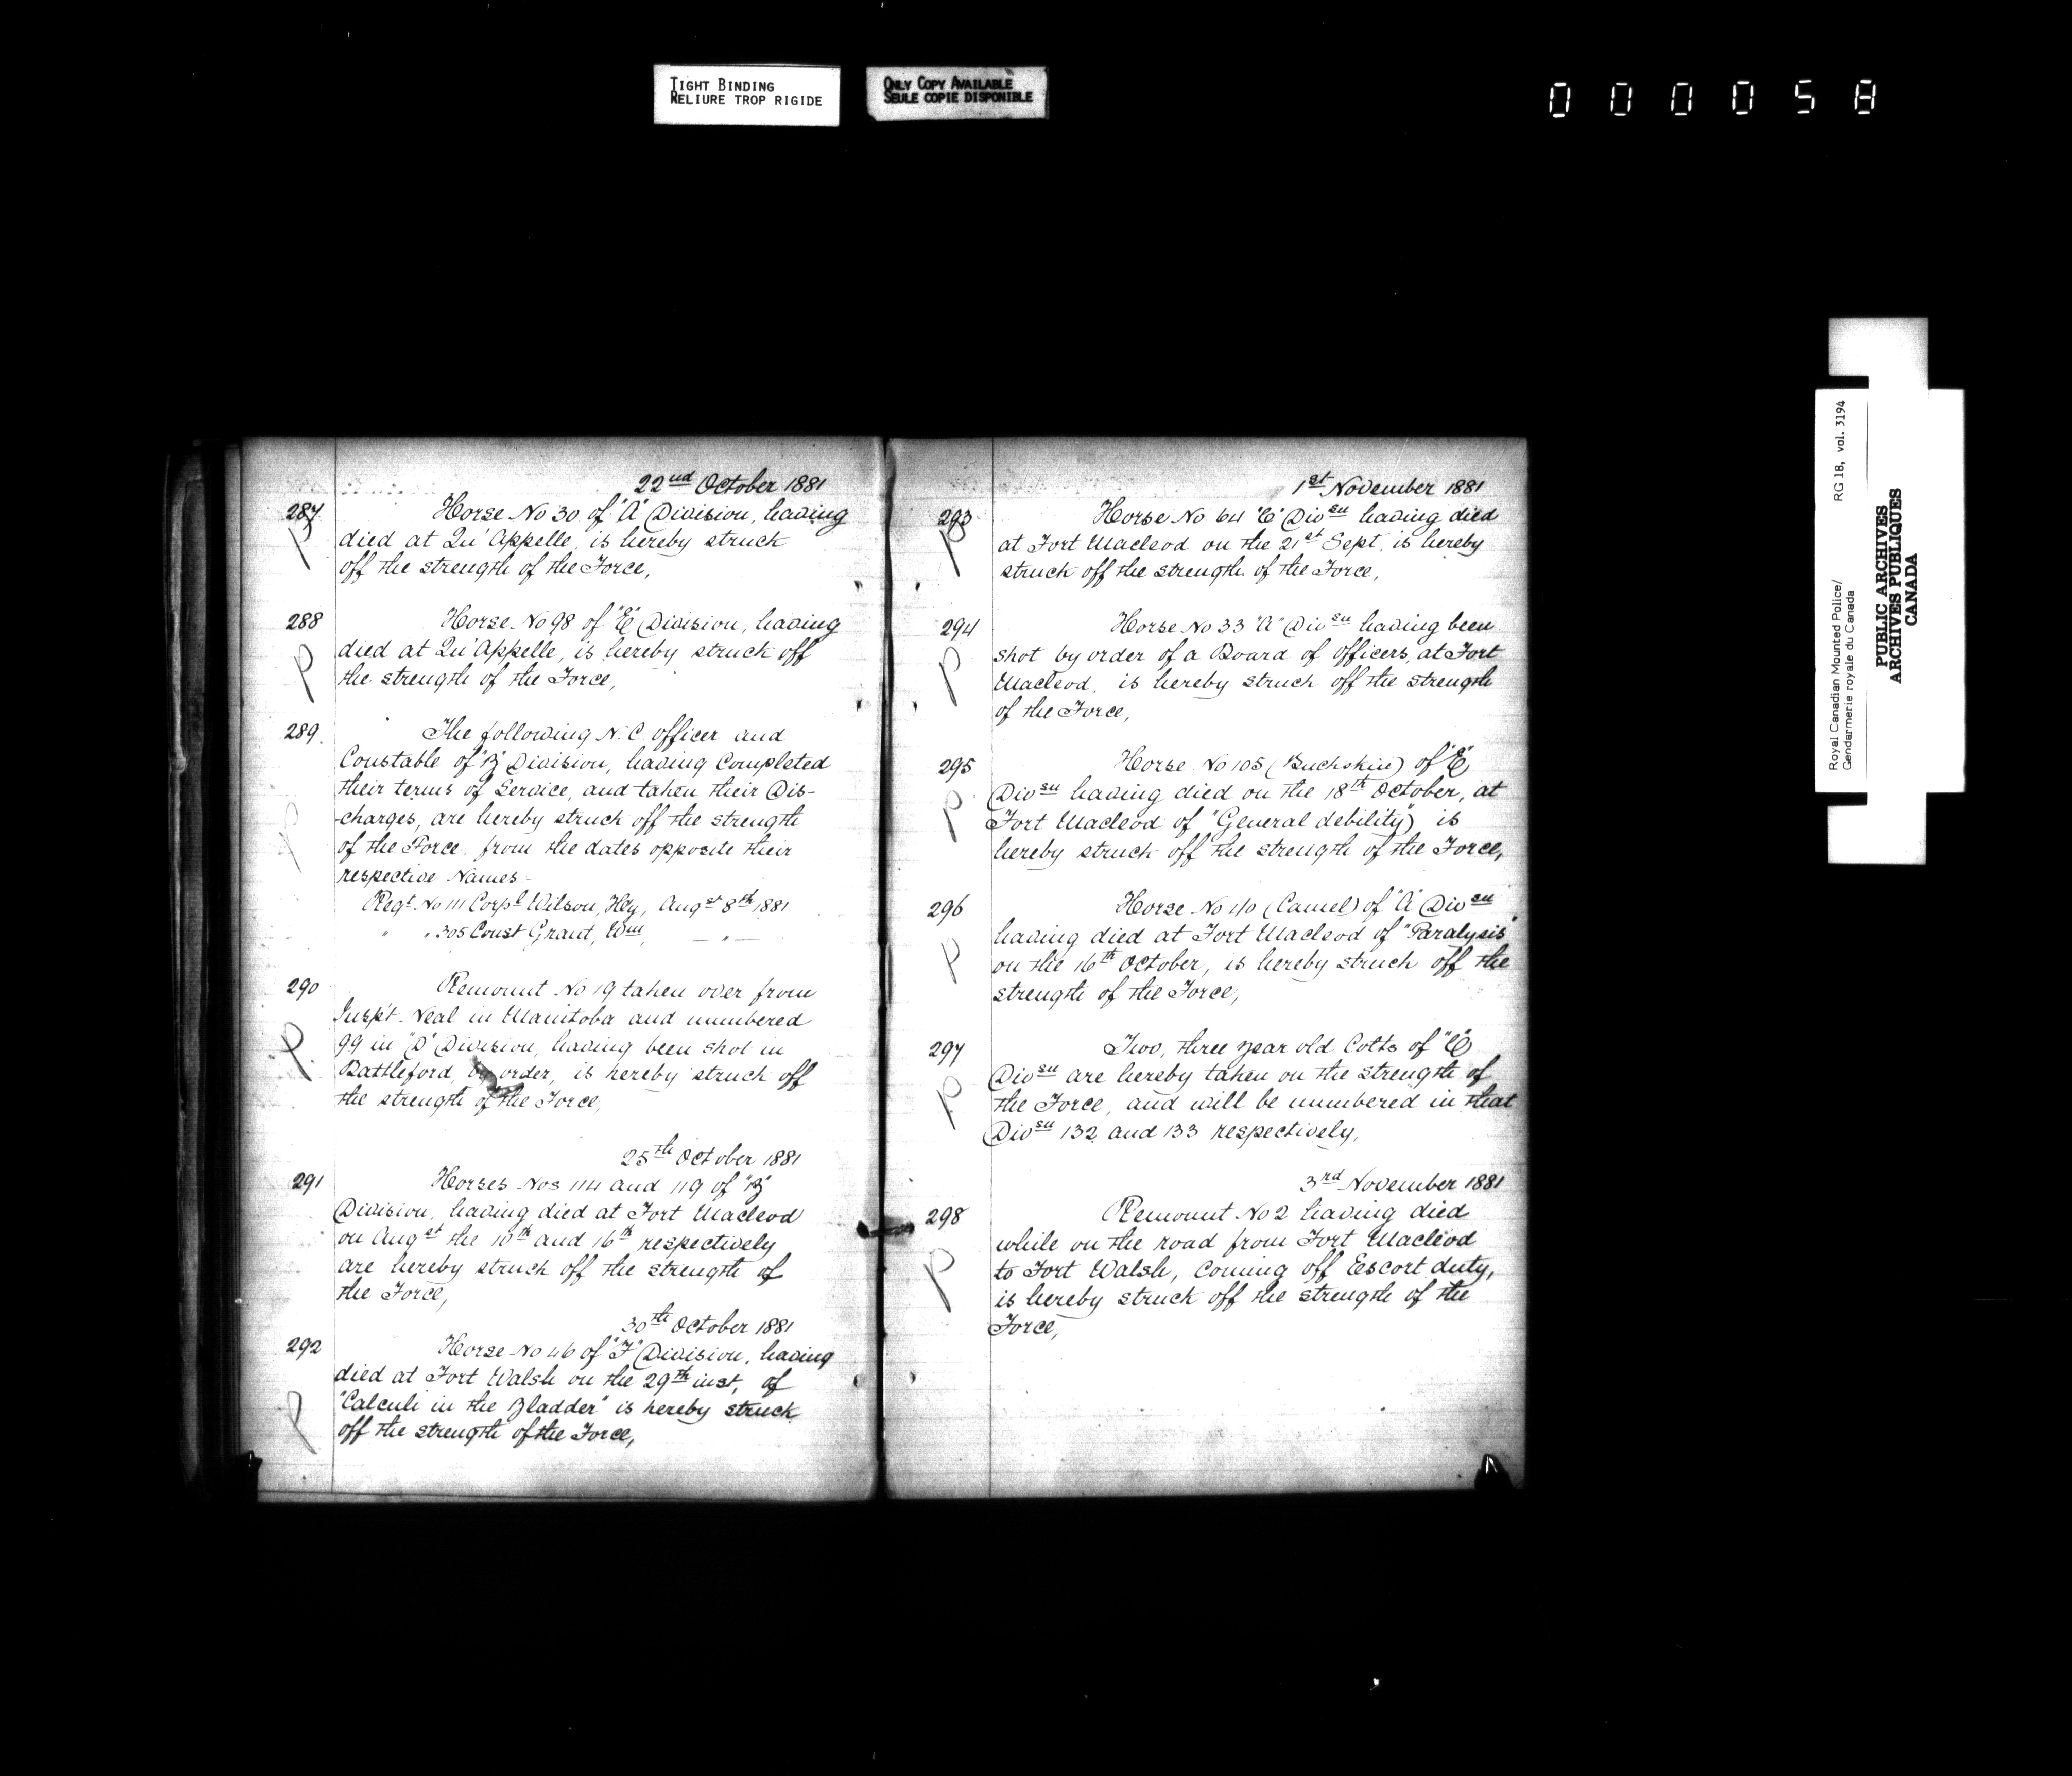 TIGHT BINDING
RELIURE TROP RIGIDE
ONLY COPY AVAILABLE
SEULE COPIE DISPONIBLE
000058
22nd October 1881
287 Horse No 30 of "A" Division, having
died at Qu'Appelle, is hereby struck
off the strength of the Force,
288 Horse No 98 of "E" Division, having
died at Qu'Appelle, is hereby struck off
the strength of the Force,
289 The following N.C officer and
Constable of "B" Division, having Completed
their terms of Service, and taken their Dis-
-charges, are hereby struck off the strength
of the Force from the dates opposite their
respective Names -
Regt No 111 Corpl Wilson, Hy, Augst 8th 1881
" " 305 Const Grant, Wm, — " —
290 Remount No 19 taken over from
Inspt. Neal in Manitoba and numbered
99 in "D" Division, having been shot in
Battleford, by order, is hereby struck off
the strength of the Force,
25th October 1881
291 Horses Nos 114 and 119 of "B"
Division, having died at Fort Macleod
on Augst the 10th and 16th respectively
are hereby struck off the strength of
the Force,
30th October 1881
292 Horse No 46 of "F" Division, having
died at Fort Walsh on the 29th inst, of
"Calculi in the Bladder" is hereby struck
off the strength of the Force,
1st November 1881
293 Horse No 64 "C" Divsn having died
at Fort Macleod on the 21st Sept, is hereby
struck off the strength of the Force,
294 Horse No 33 "A" Divsn having been
shot by order of a Board of Officers, at Fort
Macleod, is hereby struck off the strength
of the Force,
295 Horse No 105 (Buckskin) of "E"
Divsn having died on the 18th October, at
Fort Macleod of "General debility") is
hereby struck off the strength of the Force,
296 Horse No 40 (Camel) of "A" Divsn
having died at Fort Macleod of "Paralysis"
on the 16th October, is hereby struck off the
strength of the Force,
297 Two, three year old Colts of "C"
Divsn are hereby taken on the strength of
the Force, and will be numbered in that
Divsn 132 and 133 respectively,
3rd November 1881
298 Remount No 2 having died
while on the road from Fort Macleod
to Fort Walsh, Coming off Escort duty,
is hereby struck off the strength of the
Force,
Royal Canadian Mounted Police/
Gendarmerie royale du Canada
RG 18, vol. 3194
PUBLIC ARCHIVES
ARCHIVES PUBLIQUES
CANADA